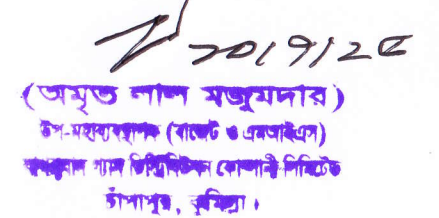 ২০।৭।২৫
(অমৃত লাল মজুমদার)
উপ-মহাব্যবস্থাপক (বাজেট ও এমআইএস)
বাখরাবাদ গ্যাস ডিস্ট্রিবিউশন কোম্পানী লিমিটেড
চাঁপাপুর, কুমিল্লা।